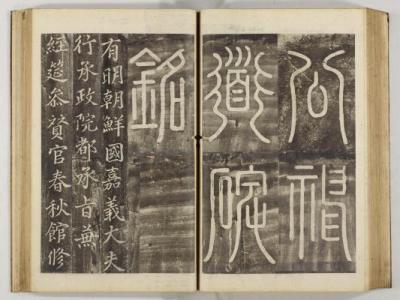 公神
道碑
銘
有明朝鮮國嘉義大夫
行承政院都承旨兼
經筵參贊官春秋館修